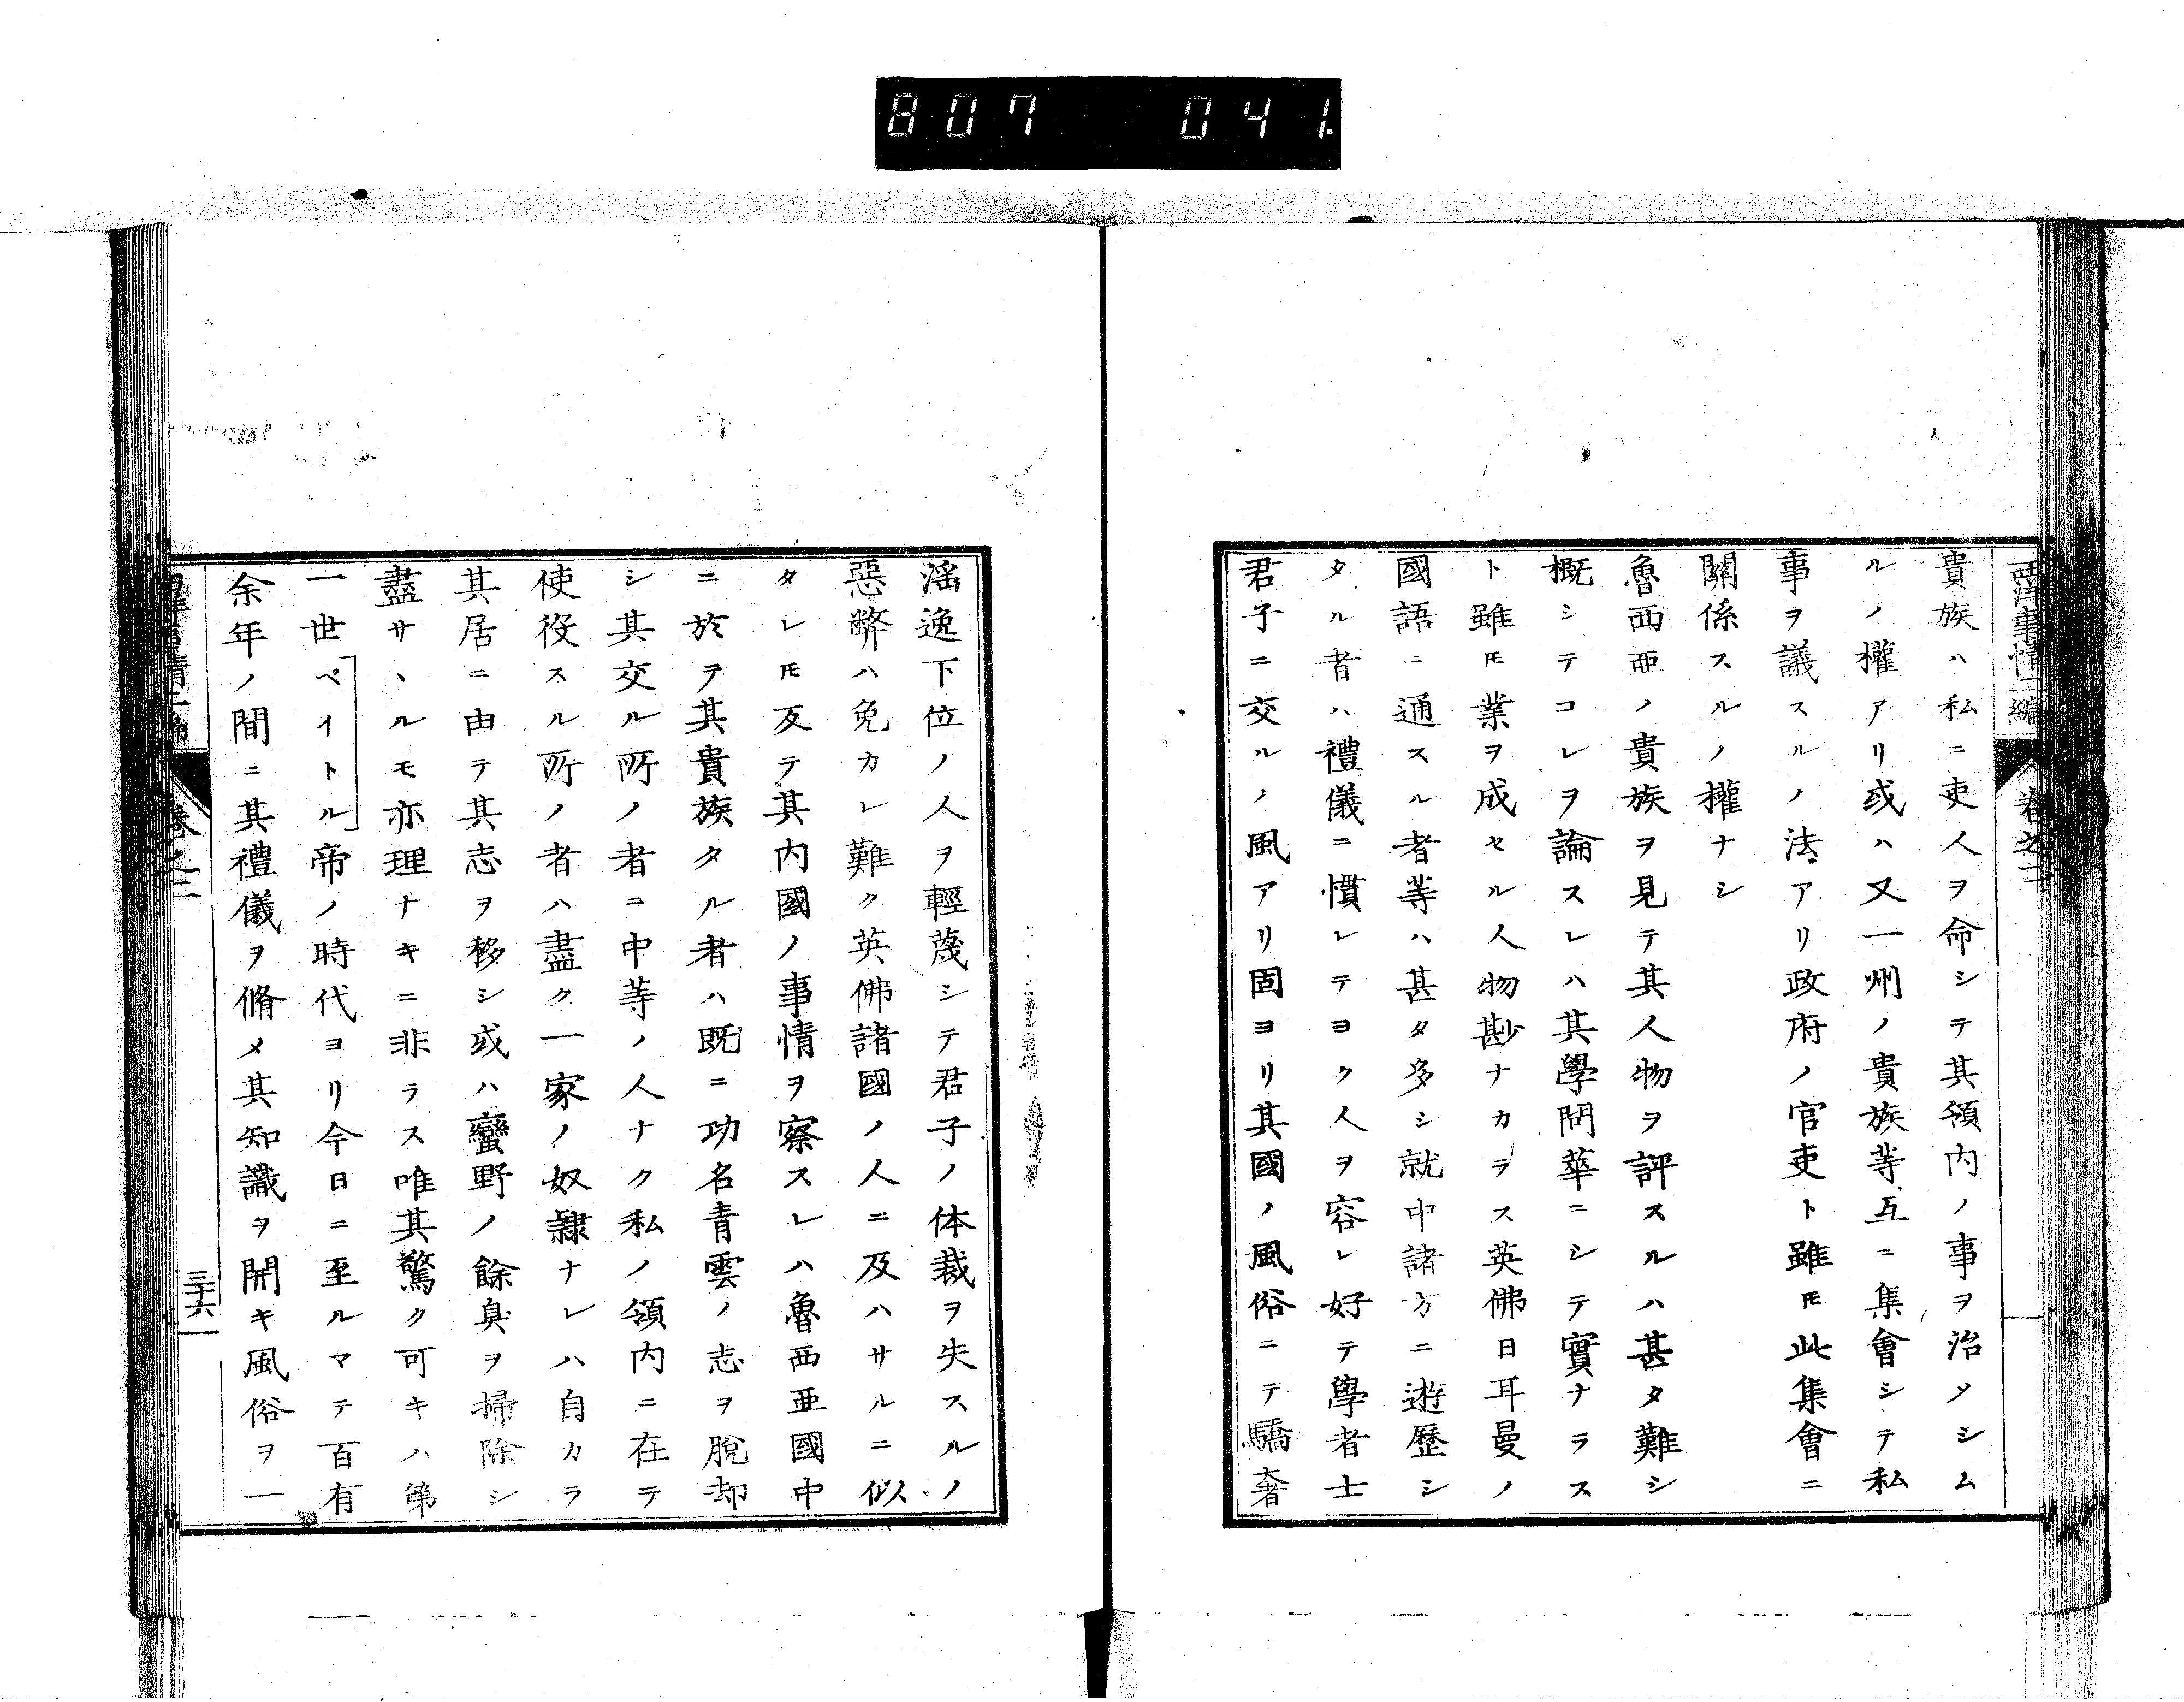 807 041.
西洋事情二編 卷之二
貴族ハ私ニ吏人ヲ命シテ其領内ノ事ヲ治メシム
ルノ權アリ或ハ又一州ノ貴族等互ニ集會シテ私
事ヲ議スルノ法アリ政府ノ官吏ト雖𪜈此集會ニ
關係スルノ權ナシ
魯西亜ノ貴族ヲ見テ其人物ヲ評スルハ甚タ難シ
概シテコレヲ論スレハ其學問華ニシテ實ナラス
ト雖𪜈業ヲ成セル人物尠ナカラス英佛日耳曼ノ
國語ニ通スル者等ハ甚タ多シ就中諸方ニ遊歷シ
タル者ハ禮儀ニ慣レテヨク人ヲ容レ好テ學者士
君子ニ交ルノ風アリ固ヨリ其國ノ風俗ニテ驕奢
滛逸下位ノ人ヲ輕蔑シテ君子ノ体裁ヲ失スルノ
惡弊ハ免カレ難ク英佛諸國ノ人ニ及ハサルニ似
タレ𪜈反テ其内國ノ事情ヲ察スレハ魯西亜國中
ニ於テ其貴族タル者ハ既ニ功名青雲ノ志ヲ脫却
シ其交ル所ノ者ニ中等ノ人ナク私ノ領内ニ在テ
使役スル所ノ者ハ盡ク一家ノ奴隷ナレハ自カラ
其居ニ由テ其志ヲ移シ或ハ蠻野ノ餘臭ヲ掃除シ
盡サヽルモ亦理ナキニ非ラス唯其驚ク可キハ第
一世ペイトル帝ノ時代ヨリ今日ニ至ルマテ百有
余年ノ間ニ其禮儀ヲ脩メ其知識ヲ開キ風俗ヲ一
西洋事情二編 卷之二 三十六